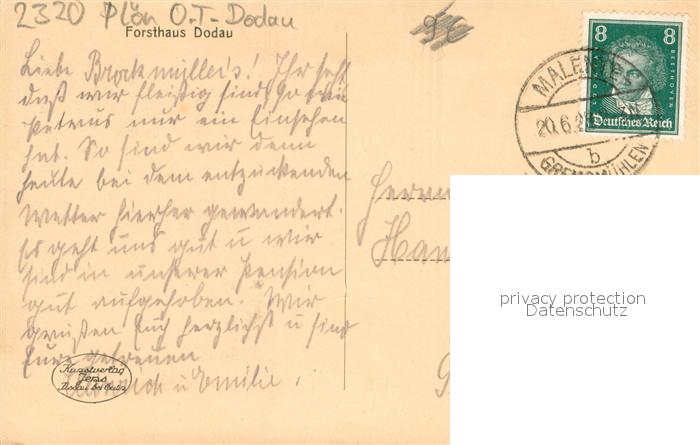 2320 Plön O.T. Dodau
Forsthaus Dodau
Liebe Brockmüller's! Ihr seht
daß wir fleißig sind, so wie
Petrus nur ein Einsehen
hat. So sind wir denn
heute bei dem entzückenden
Wetter hierher gewandert.
Es geht uns gut u wir
sind in unserer Pension
gut aufgehoben. Wir
grüßen Euch herzlichst u sind
Eure getreuen
Heinrich u Emilie.
Kunstverlag
Jens
8 8
BEETHOVEN
Deutsches Reich
MALENTE
20.6.
b
GREMSMÜHLEN
Herrn
Ham
privacy protection
Datenschutz